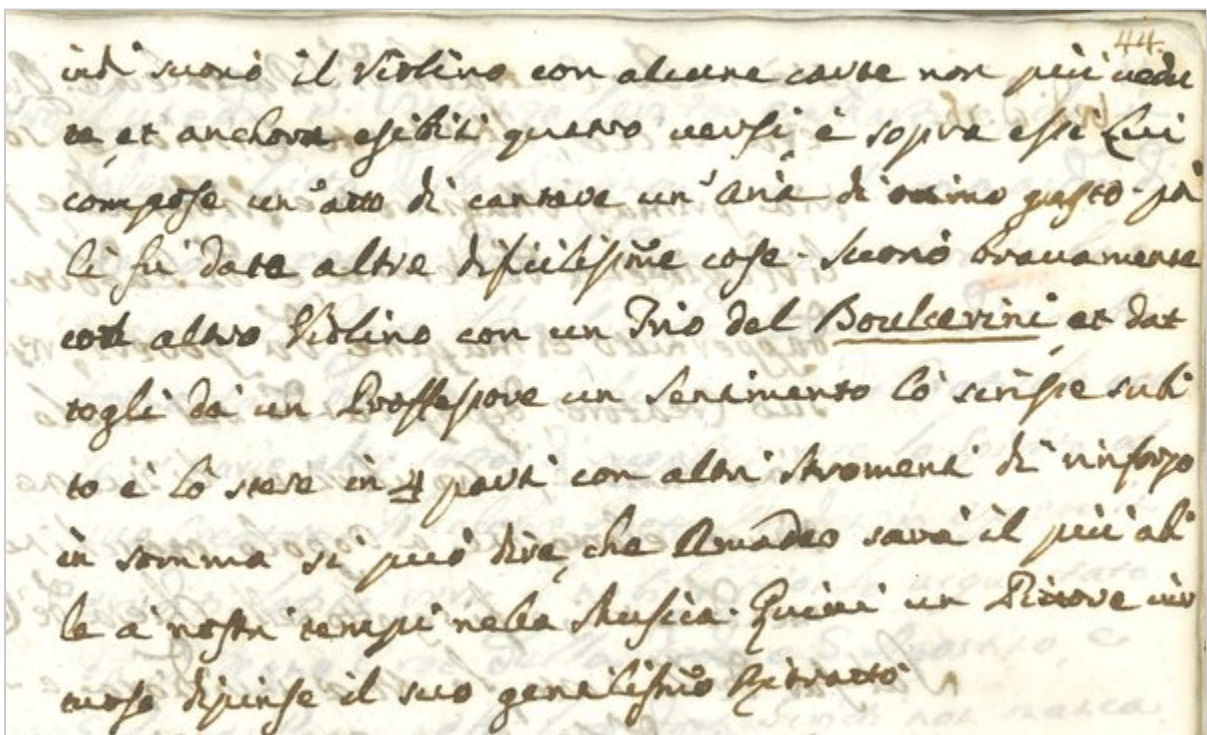 44.
indi suonò il Violino con alcune carte non più uedu
te et anchora esibiti quatro uersi è sopra essi Lui
compose un'atto di cantare un'Aria di otimo gusto - poi
li fù date altre dificilissime cose - Suonò brauamente
altro Violino con un Trio del Boulcerini, et dat
togli da un Proffessore un Sentimento lò scrisse subi
to è lò stese in 4 parti con altri Stromenti di rinforzo
in somma si può dire, che Amadeo sarà il più abi
le a nostri tempi nella Musica. Quiui un Pittore uir
tuoso dipinse il suo gentilissimo Ritratto